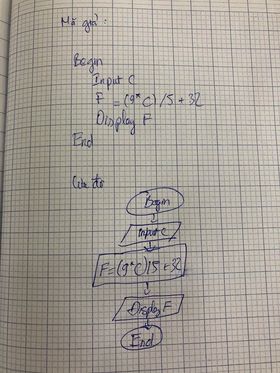 Mã giả:
Begin
Input C
F = (9*C)/5 + 32
Display F
End
Lưu đồ
Begin
Input C
F=(9*C)/5+32
Display F
End